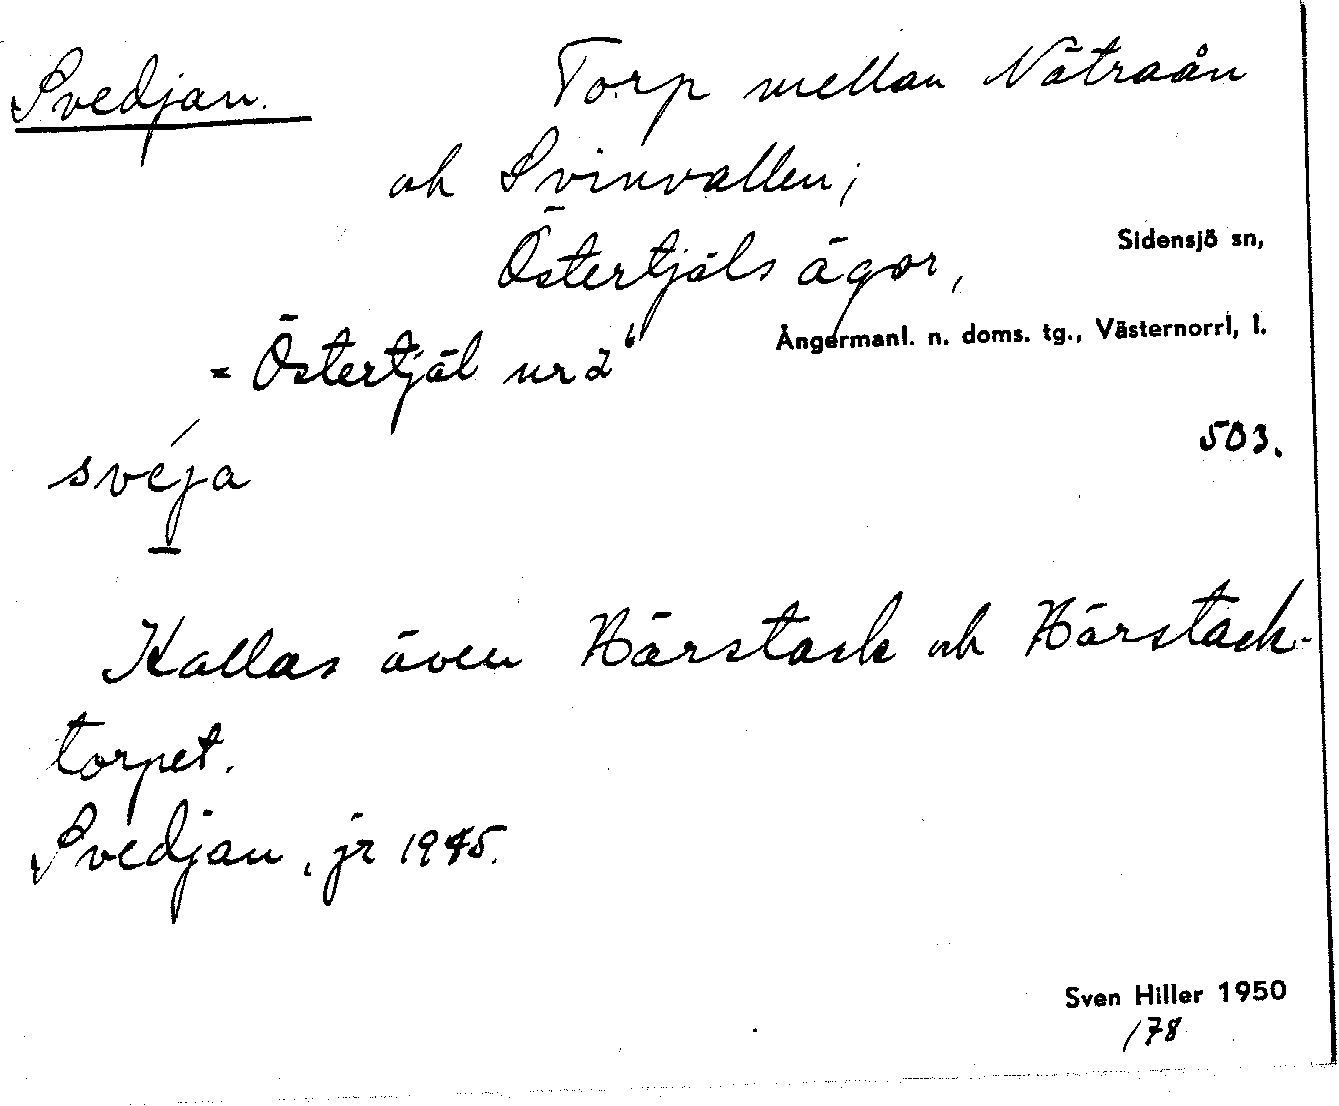 Svedjan.
Torp mellan Nätraån
och Svinvallen;
Östertjäls ägor,
Sidensjö sn,
= Östertjäl nr 2
Ångermanl. n. doms. tg., Västernorrl, l.
503.
svéja
Kallas även Härstack och Härstack-
torpet.
Svedjan, jr 1945.
Sven Hiller 1950
178